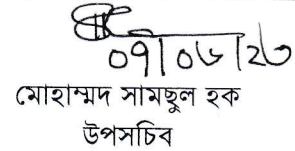 ০৭/০৬/২৩
মোহাম্মদ সামছুল হক
উপসচিব